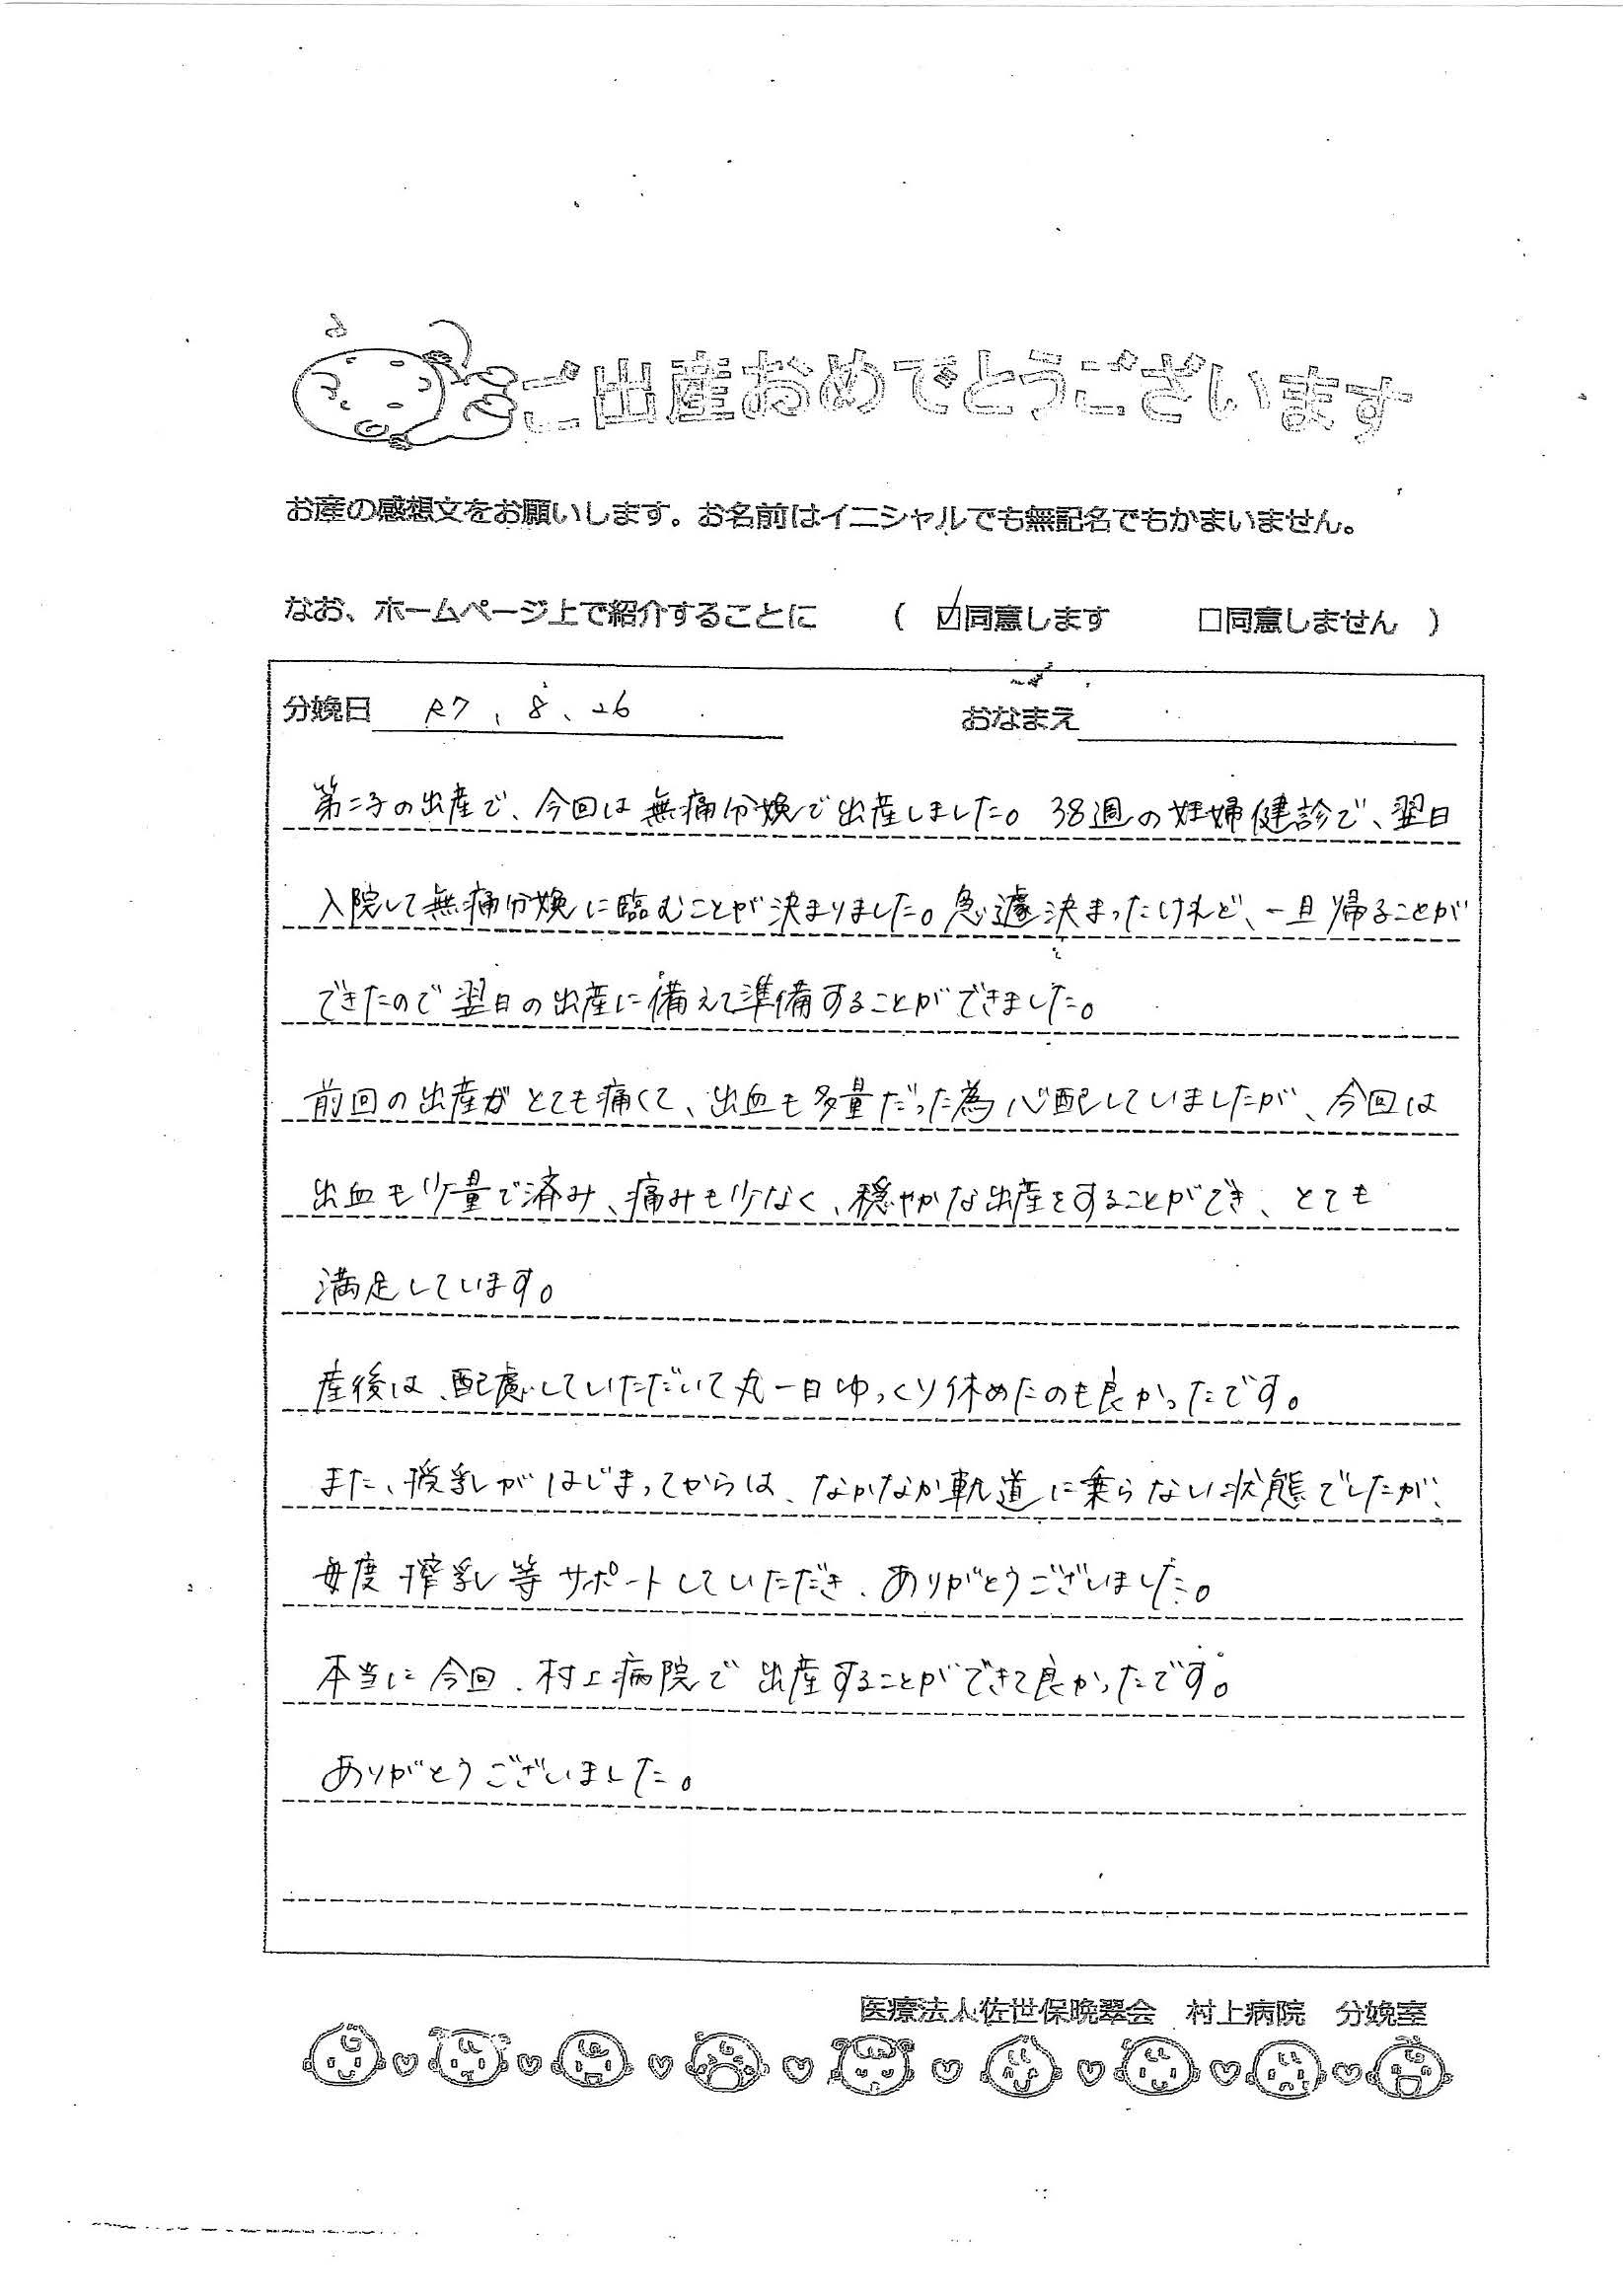 ご出産おめでとうございます
お産の感想文をお願いします。お名前はイニシャルでも無記名でもかまいません。
なお、ホームページ上で紹介することに （ ☑同意します □同意しません ）
分娩日 R7、8、26 おなまえ
第二子の出産で、今回は無痛分娩で出産しました。38週の妊婦健診で、翌日
入院して無痛分娩に臨むことが決まりました。急遽決まったけれど、一旦帰ることが
できたので翌日の出産に備えて準備することができました。
前回の出産がとても痛くて、出血も多量だった為心配していましたが、今回は
出血も少量で済み、痛みも少なく、穏やかな出産をすることができ、とても
満足しています。
産後は、配慮していただいて丸一日ゆっくり休めたのも良かったです。
また、授乳がはじまってからは、なかなか軌道に乗らない状態でしたが、
毎度搾乳等サポートしていただき、ありがとうございました。
本当に今回、村上病院で出産することができて良かったです。
ありがとうございました。
医療法人佐世保晩翠会 村上病院 分娩室